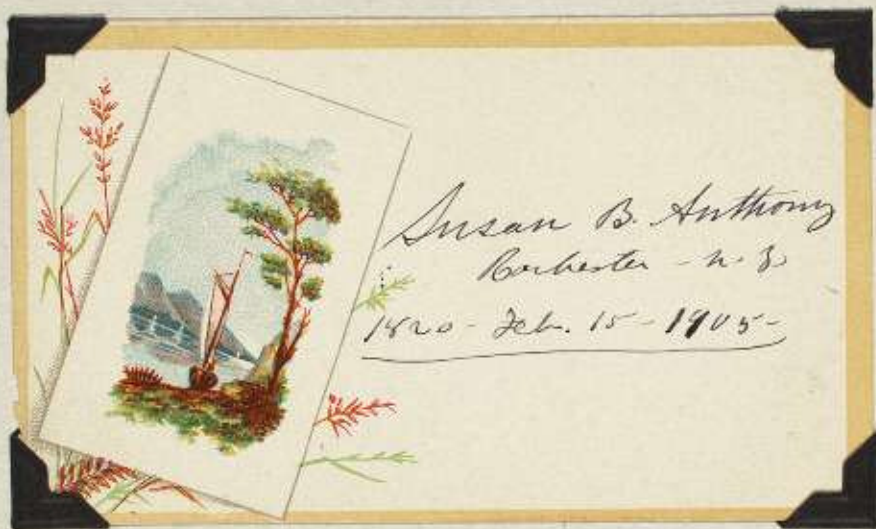 Susan B. Anthony
Rochester - N. Y.
1820 - Feb. 15 - 1905 -